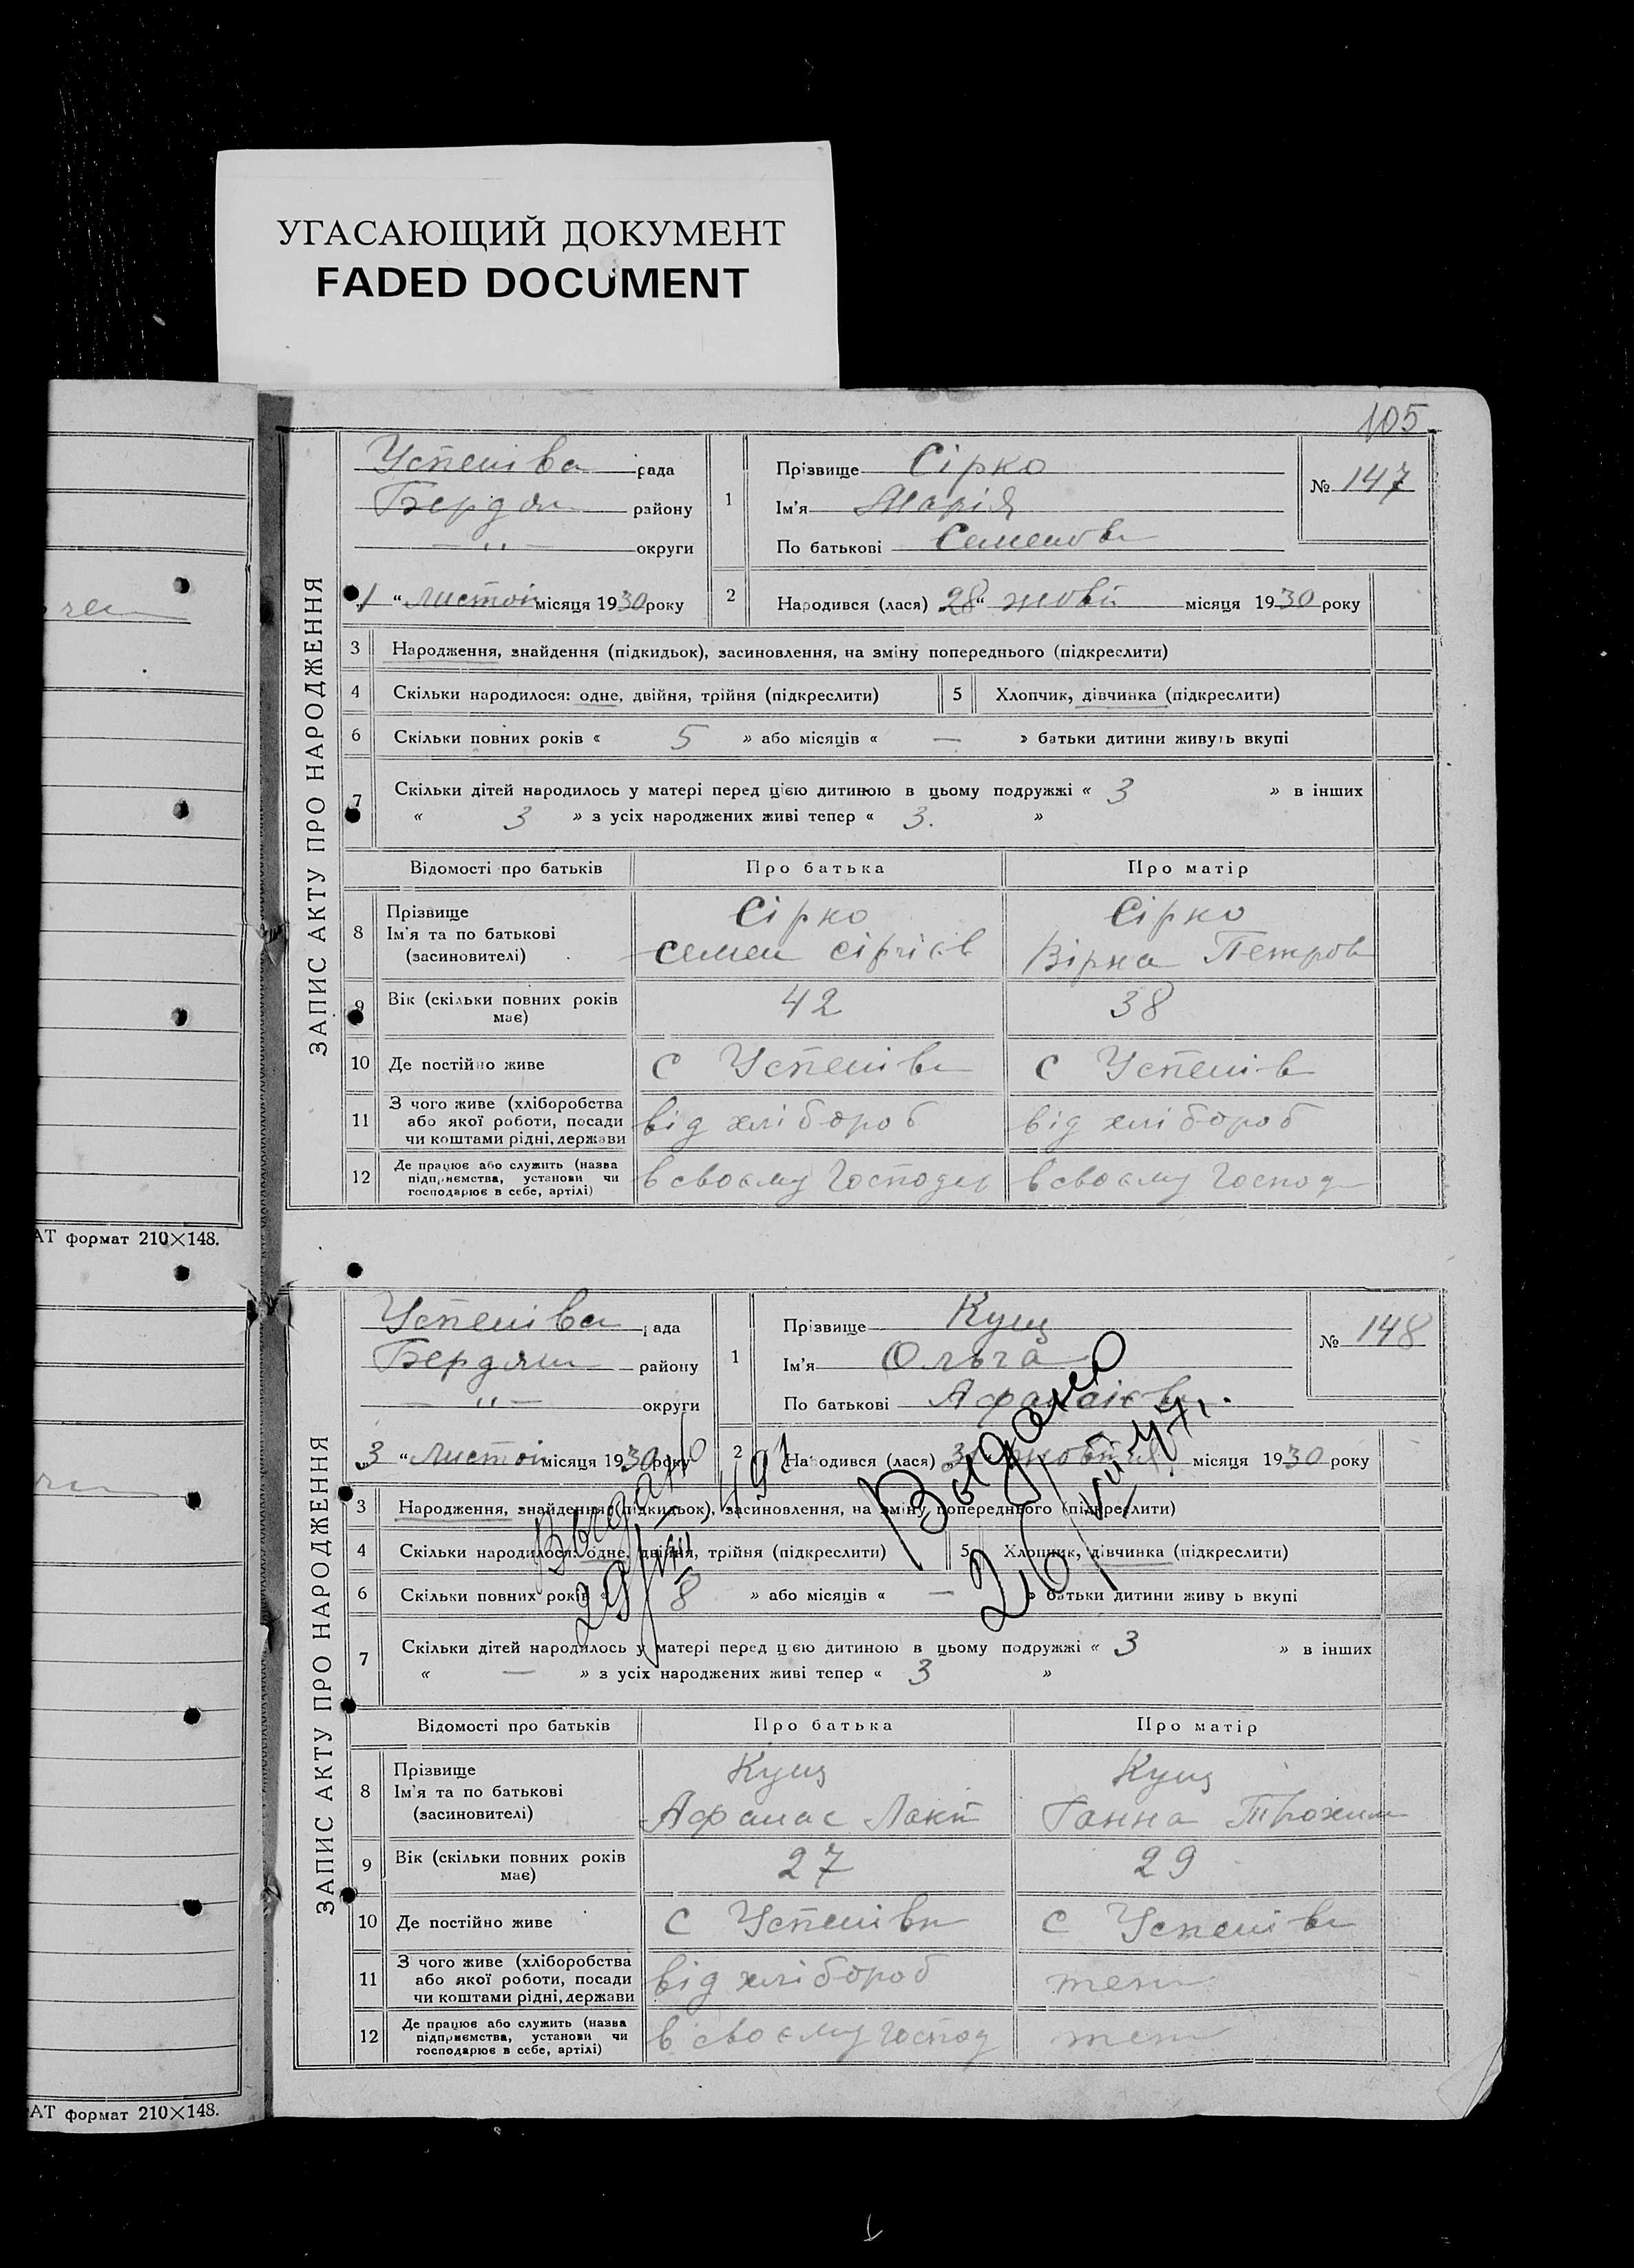 УГАСАЮЩИЙ ДОКУМЕНТ
FADED DOCUMENT
105
ЗАПИС АКТУ ПРО НАРОДЖЕННЯ
Успенівса рада
Бердян району
— " — округи
1 “ Листоп місяця 1930 року
1 Прізвище Сірко
Ім'я Марія
По батькові Семенов
№ 147
2 Народився (лася) 28 “ жовт місяця 1930 року
3 Народження, знайдення (підкидьок), засиновлення, на зміну попереднього (підкреслити)
4 Скільки народилося: одне, двійня, трійня (підкреслити) 5 Хлопчик, дівчинка (підкреслити)
6 Скільки повних років « 5 » або місяців « — » батьки дитини живуть вкупі
7 Скільки дітей народилось у матері перед цією дитиною в цьому подружжі « 3 » в інших
« 3 » з усіх народжених живі тепер « 3. »
Відомості про батьків Про батька Про матір
8 Прізвище Сірко Сірко
Ім'я та по батькові
(засновителі) Семен Сергієв Вірка Петров
9 Вік (скільки повних років має) 42 38
10 Де постійно живе с Успенівк с Успенів
11 З чого живе (хліборобства
або якої роботи, посади
чи коштами рідні, держави від хлібороб від хлібороб
12 Де працює або служить (назва
підприємства, установи чи
господарює в себе, артілі) в своєму господ в своєму господ
АТ формат 210×148.
ЗАПИС АКТУ ПРО НАРОДЖЕННЯ
Успенівса рада
Бердян району
— " — округи
3 “ Листоп місяця 1930 року
1 Прізвище Кущ
Ім'я Ольга
По батькові Афанасієв
№ 148
2 Народився (лася) 31 жовтня місяця 1930 року
Выдано
Выдано
3 Народження, знайдення (підкидьок), засиновлення, на зміну попереднього (підкреслити)
4 Скільки народилося: одне, двійня, трійня (підкреслити) 5 Хлопчик, дівчинка (підкреслити)
6 Скільки повних років « 8 » або місяців « — » батьки дитини живу ь вкупі
7 Скільки дітей народилось у матері перед цією дитиною в цьому подружжі « 3 » в інших
« — » з усіх народжених живі тепер « 3 »
Відомості про батьків Про батька Про матір
8 Прізвище Кущ Кущ
Ім'я та по батькові
(засиновителі) Афанас Лакт Ганна Трохим
9 Вік (скільки повних років має) 27 29
10 Де постійно живе с Успенівк с Успенів
11 З чого живе (хліборобства
або якої роботи, посади
чи коштами рідні, держави від хлібороб теж
12 Де працює або служить (назва
підприємства, установи чи
господарює в себе, артілі) в своєму господ теж
АТ формат 210×148.